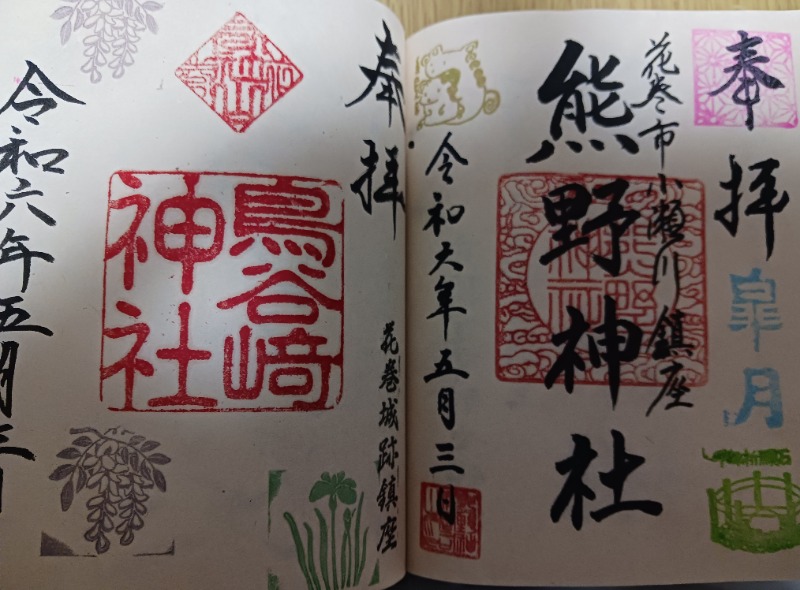 奉拝
皐月
花巻市小瀬川鎮座
熊野神社
令和六年五月三日
奉拝
花巻城跡鎮座
鳥谷崎
神社
令和六年五月三日